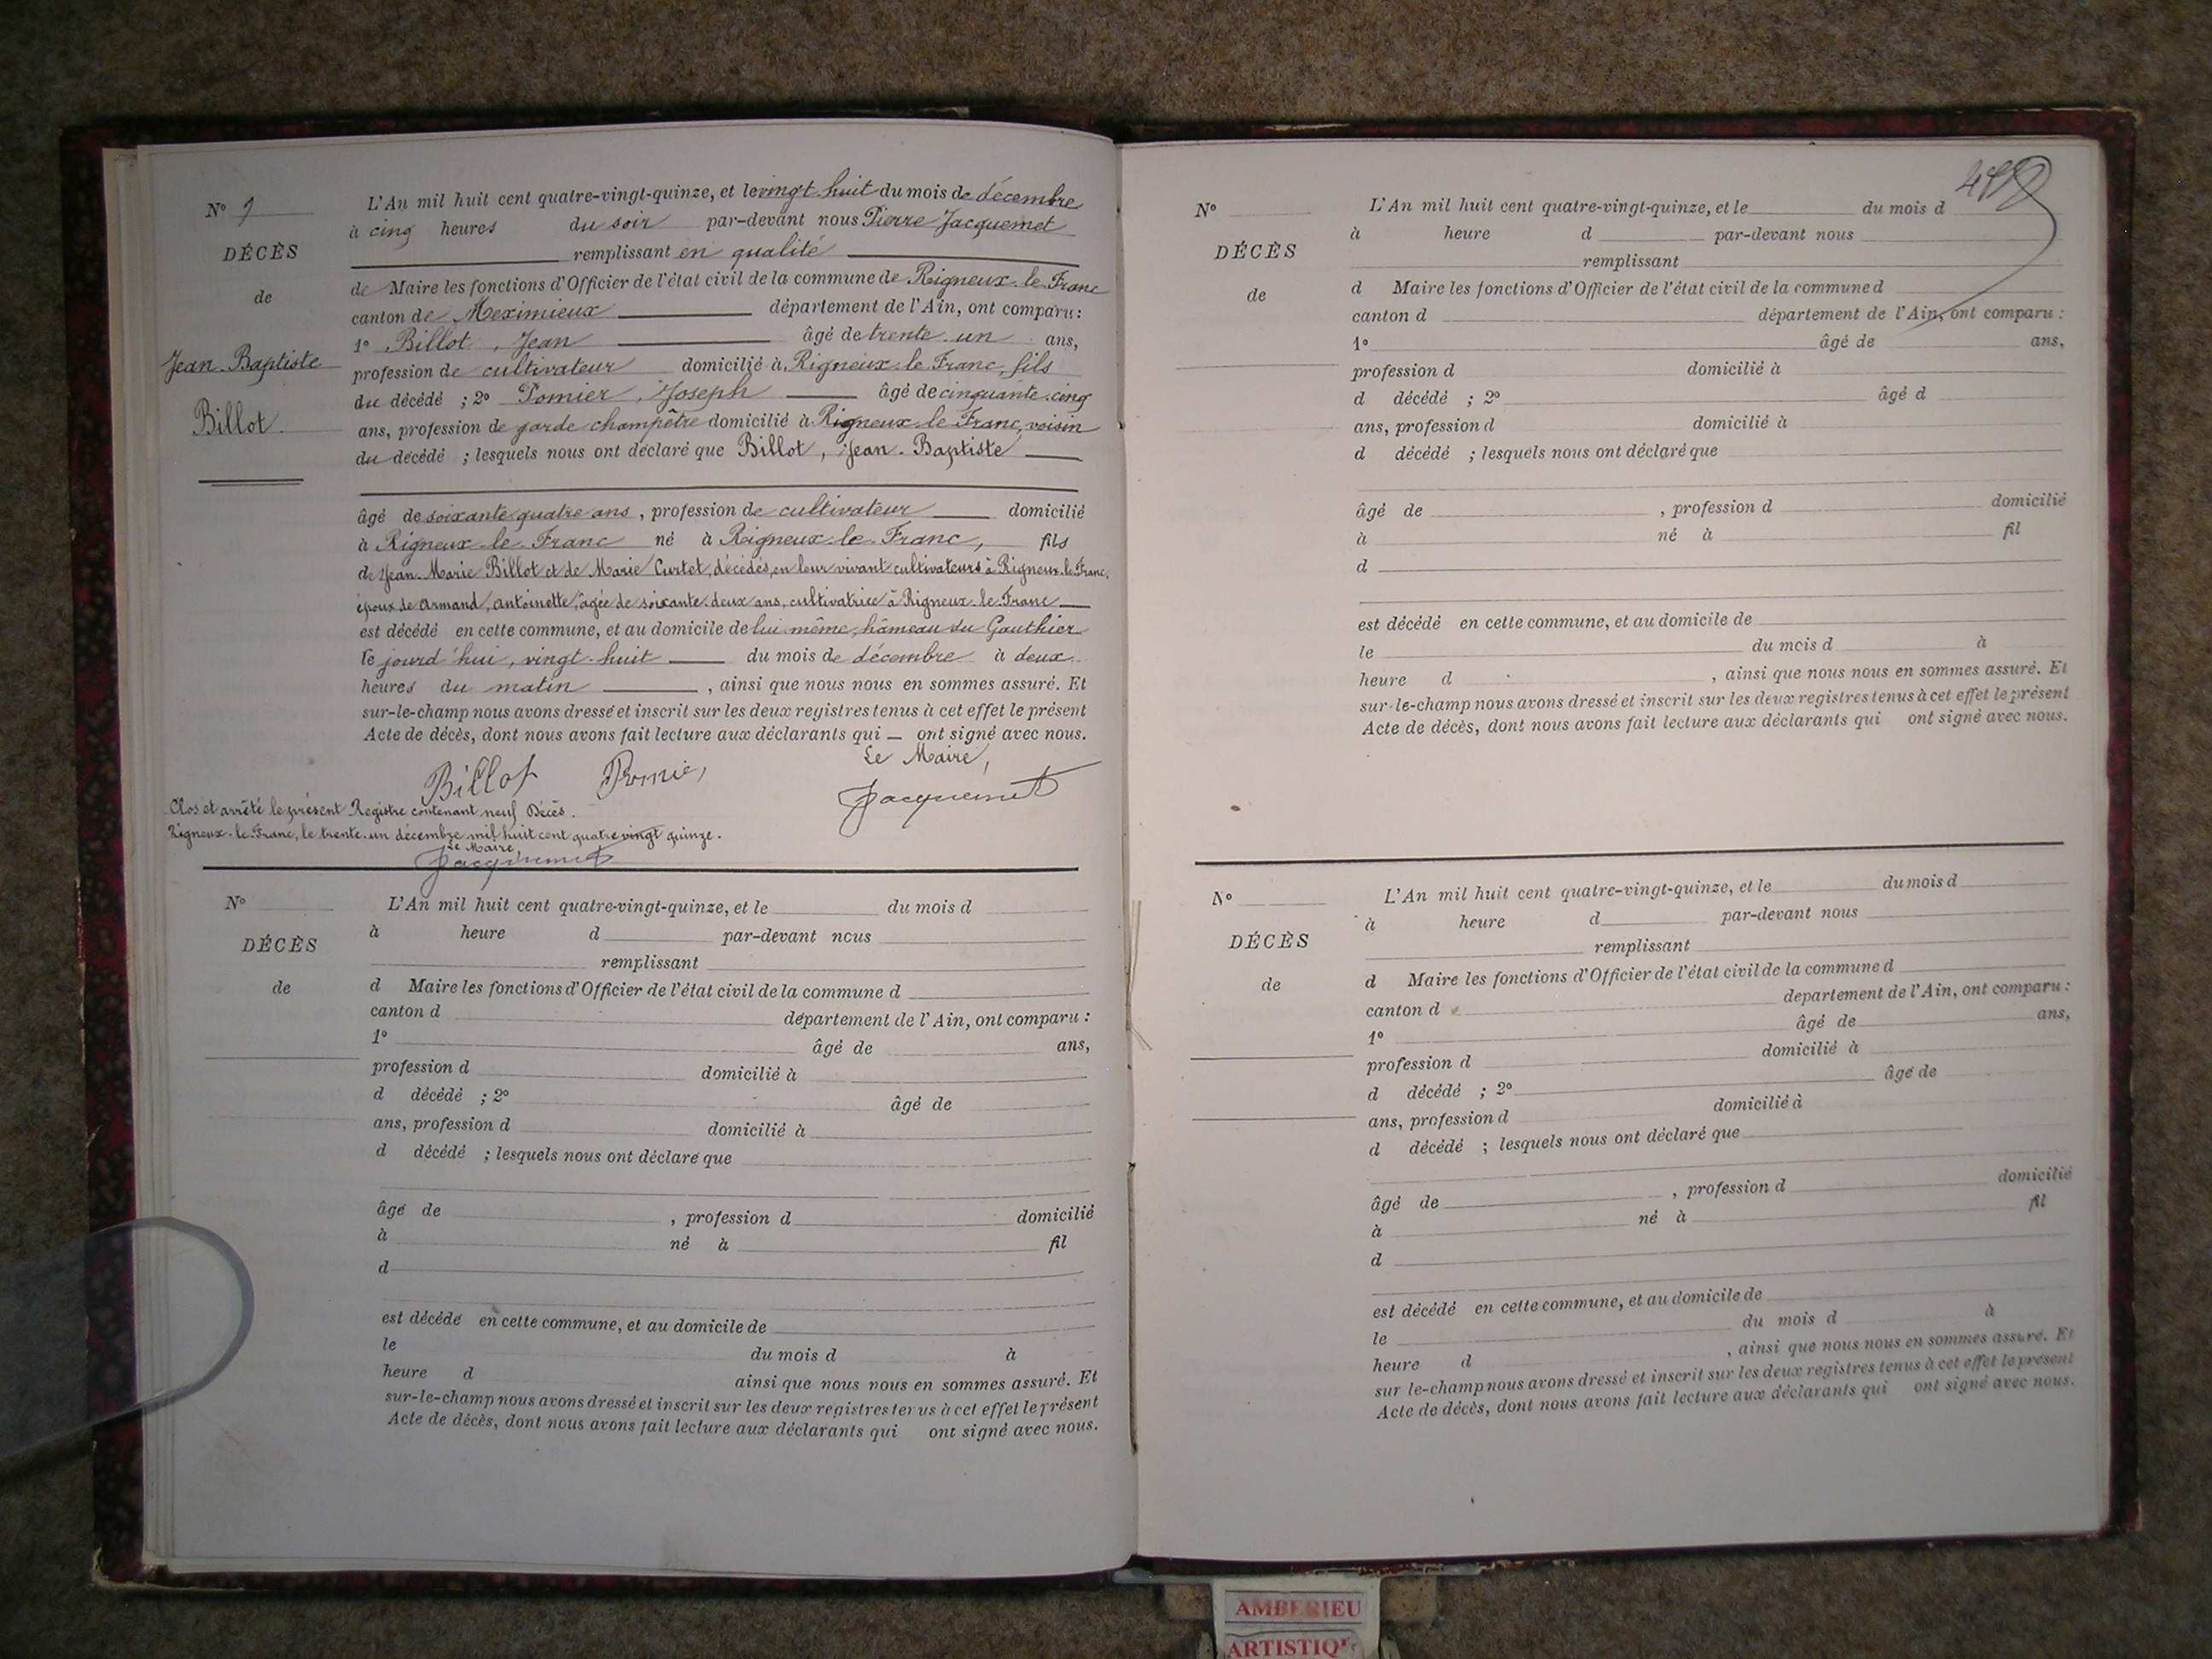 N° 9
DÉCÈS
de
Jean-Baptiste
Billot
L'An mil huit cent quatre-vingt-quinze, et le vingt-huit du mois de décembre
à cinq heures du soir par-devant nous Pierre Jacquemet
remplissant en qualité
de Maire les fonctions d'Officier de l'état civil de la commune de Rigneux-le-Franc
canton de Meximieux département de l'Ain, ont comparu :
1° Billot, Jean âgé de trente-un ans,
profession de cultivateur domicilié à Rigneux-le-Franc, fils
du décédé ; 2° Pomier, Joseph âgé de cinquante-cinq
ans, profession de garde champêtre domicilié à Rigneux-le-Franc, voisin
du décédé ; lesquels nous ont déclaré que Billot, Jean-Baptiste
âgé de soixante quatre ans, profession de cultivateur domicilié
à Rigneux-le-Franc né à Rigneux-le-Franc, fils
de Jean-Marie Billot et de Marie Curtet, décédés, en leur vivant cultivateurs à Rigneux-le-Franc,
époux de Armand, Antoinette, âgée de soixante-deux ans, cultivatrice à Rigneux-le-Franc
est décédé en cette commune, et au domicile de lui-même, hameau du Gauthier
le jourd'hui, vingt-huit du mois de décembre à deux
heures du matin, ainsi que nous nous en sommes assuré. Et
sur-le-champ nous avons dressé et inscrit sur les deux registres tenus à cet effet le présent
Acte de décès, dont nous avons fait lecture aux déclarants qui — ont signé avec nous.
Le Maire,
Billot Pomier Jacquemet
Clos et arrêté le présent Registre contenant neuf Décès.
Rigneux-le-Franc, le trente-un décembre mil huit cent quatre vingt quinze.
Le Maire
Jacquemet
N°
DÉCÈS
de
L'An mil huit cent quatre-vingt-quinze, et le du mois d
à heure d par-devant nous
remplissant
d Maire les fonctions d'Officier de l'état civil de la commune d
canton d département de l'Ain, ont comparu :
1° âgé de ans,
profession d domicilié à
d décédé ; 2° âgé de
ans, profession d domicilié à
d décédé ; lesquels nous ont déclaré que
âgé de , profession d domicilié
à né à fil
d
est décédé en cette commune, et au domicile de
le du mois d à
heure d ainsi que nous nous en sommes assuré. Et
sur-le-champ nous avons dressé et inscrit sur les deux registres tenus à cet effet le présent
Acte de décès, dont nous avons fait lecture aux déclarants qui ont signé avec nous.
N°
DÉCÈS
de
L'An mil huit cent quatre-vingt-quinze, et le du mois d
à heure d par-devant nous
remplissant
d Maire les fonctions d'Officier de l'état civil de la commune d
canton d département de l'Ain, ont comparu :
1° âgé de ans,
profession d domicilié à
d décédé ; 2° âgé d
ans, profession d domicilié à
d décédé ; lesquels nous ont déclaré que
âgé de , profession d domicilié
à né à fil
d
est décédé en cette commune, et au domicile de
le du mois d à
heure d , ainsi que nous nous en sommes assuré. Et
sur-le-champ nous avons dressé et inscrit sur les deux registres tenus à cet effet le présent
Acte de décès, dont nous avons fait lecture aux déclarants qui ont signé avec nous.
N°
DÉCÈS
de
L'An mil huit cent quatre-vingt-quinze, et le du mois d
à heure d par-devant nous
remplissant
d Maire les fonctions d'Officier de l'état civil de la commune d
canton d departement de l'Ain, ont comparu :
1° âgé de ans,
profession d domicilié à
d décédé ; 2° âgé de
ans, profession d domicilié à
d décédé ; lesquels nous ont déclaré que
âgé de , profession d domicilié
à né à fil
d
est décédé en cette commune, et au domicile de
le du mois d à
heure d , ainsi que nous nous en sommes assuré. Et
sur le-champ nous avons dressé et inscrit sur les deux registres tenus à cet effet le présent
Acte de décès, dont nous avons fait lecture aux déclarants qui ont signé avec nous.
AMBERIEU